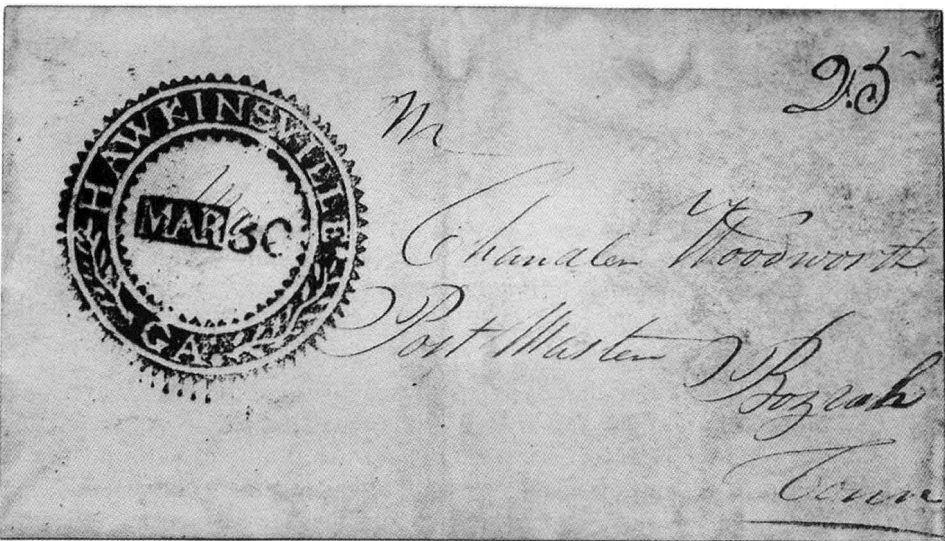 HAWKINSVILLE
GA.
MAR 30
25
Mr
Chandler Woodworth
Post Master Bozrah
Conn